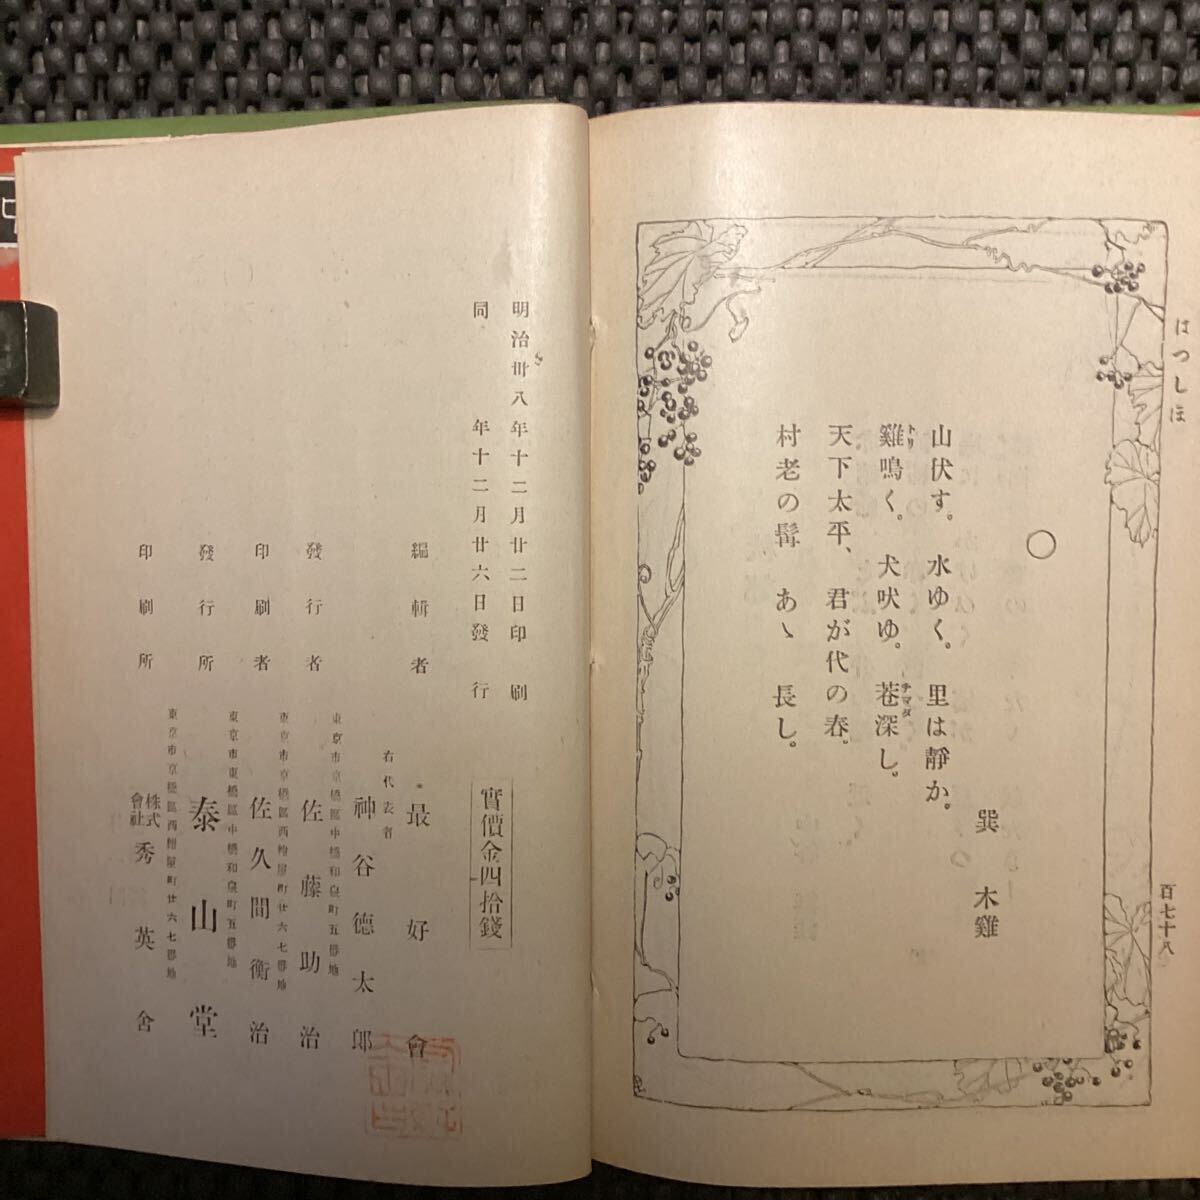 はつしほ
百七十八
○
巽 木雞
山伏す。水ゆく。里は靜か。
雞鳴く。犬吠ゆ。巷深し。
トリ
チマタ
天下太平、君が代の春。
村老の髯 あゝ 長し。
明治卅八年十二月廿二日印刷
同 年十二月廿六日發行
實價金四拾錢
編輯者 最好會
右代表者 神谷德太郎
東京市京橋區中橋和泉町五番地
發行者 佐藤助治
東京市京橋區西紺屋町廿六七番地
印刷者 佐久間衡治
東京市京橋區中橋和泉町五番地
發行所 泰山堂
東京市京橋區西紺屋町廿六七番地
印刷所 株式會社 秀英舍